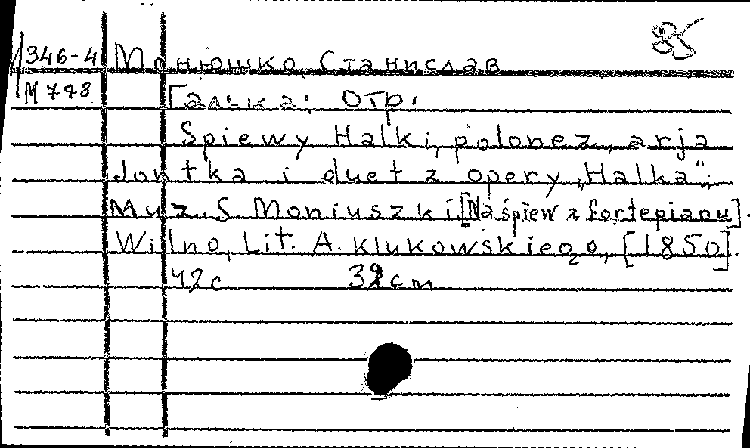 346-4 Монюшко, Станислав
М 778
Галька; Отр.
Śpiewy Halki, polonez, arja
Jontka i duet z opery „Halka”.
Muz. S. Moniuszki. [Na śpiew z fortepianu].
Wilno, Lit. A. Klukowskiego, [1850].
42c 32cm